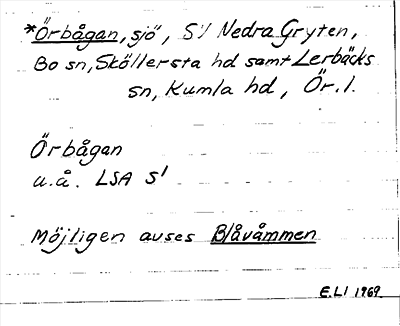 *Örbågan, sjö, S1 Nedra Gryten,
Bo sn, Sköllersta hd samt Lerbäcks
sn, Kumla hd, Ör. l.
Örbågan
u.å. LSA S1
Möjligen avses Blåvåmmen
E.LI 1969.